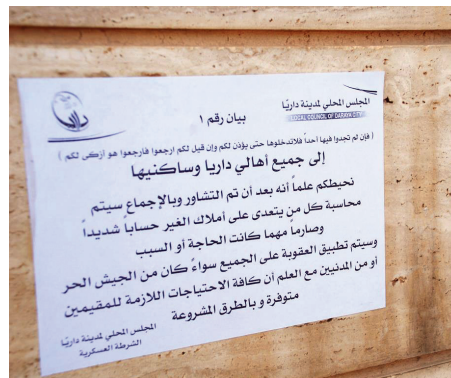 المجلس المحلي لمدينة داريّا
LOCAL COUNCIL OF DARAYA CITY
داريا
بيان رقم ١
( فإن لم تجدوا فيها أحداً فلاتدخلوها حتى يؤذن لكم وإن قيل لكم ارجعوا فارجعوا هو أزكى لكم )
إلى جميع أهالي داريا وساكنيها
نحيطكم علماً أنه بعد أن تم التشاور وبالإجماع سيتم
محاسبة كل من يتعدى على أملاك الغير حساباً شديداً
وصارماً مهما كانت الحاجة أو السبب
وسيتم تطبيق العقوبة على الجميع سواءً كان من الجيش الحر
أو من المدنيين مع العلم أن كافة الاحتياجات اللازمة للمقيمين
متوفرة و بالطرق المشروعة
المجلس المحلي لمدينة داريّا
الشرطة العسكرية